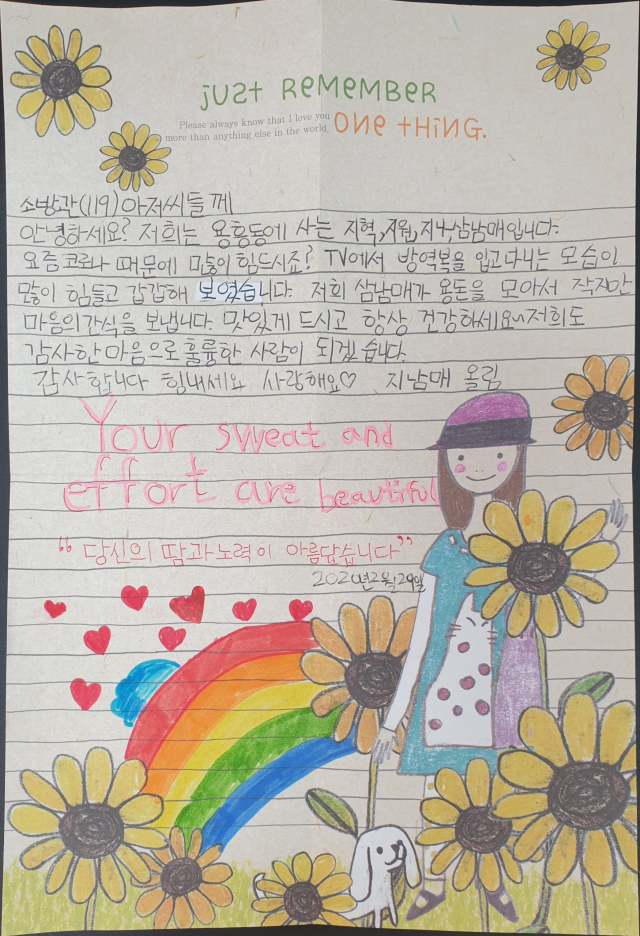 JUST REMEMBER
Please always know that I love you
more than anything else in the world.
ONE THING.
소방관(119)아저씨들께
안녕하세요? 저희는 용흥동에 사는 지혁, 지원, 지나,삼남매입니다.
요즘코로나 때문에 많이 힘드시죠? TV에서 방역복을 입고다니는 모습이
많이 힘들고 갑갑해 보였습니다. 저희 삼남매가 용돈을 모아서 작지만
마음의간식을 보냅니다. 맛있게 드시고 항상 건강하세요~저희도
감사한마음으로 훌륭한 사람이 되겠습니다.
감사합니다 힘내세요 사랑해요♡ 지남매 올림
Your sweat and
effort are beautiful
“당신의 땀과노력이 아름답습니다”
2020년2월29일